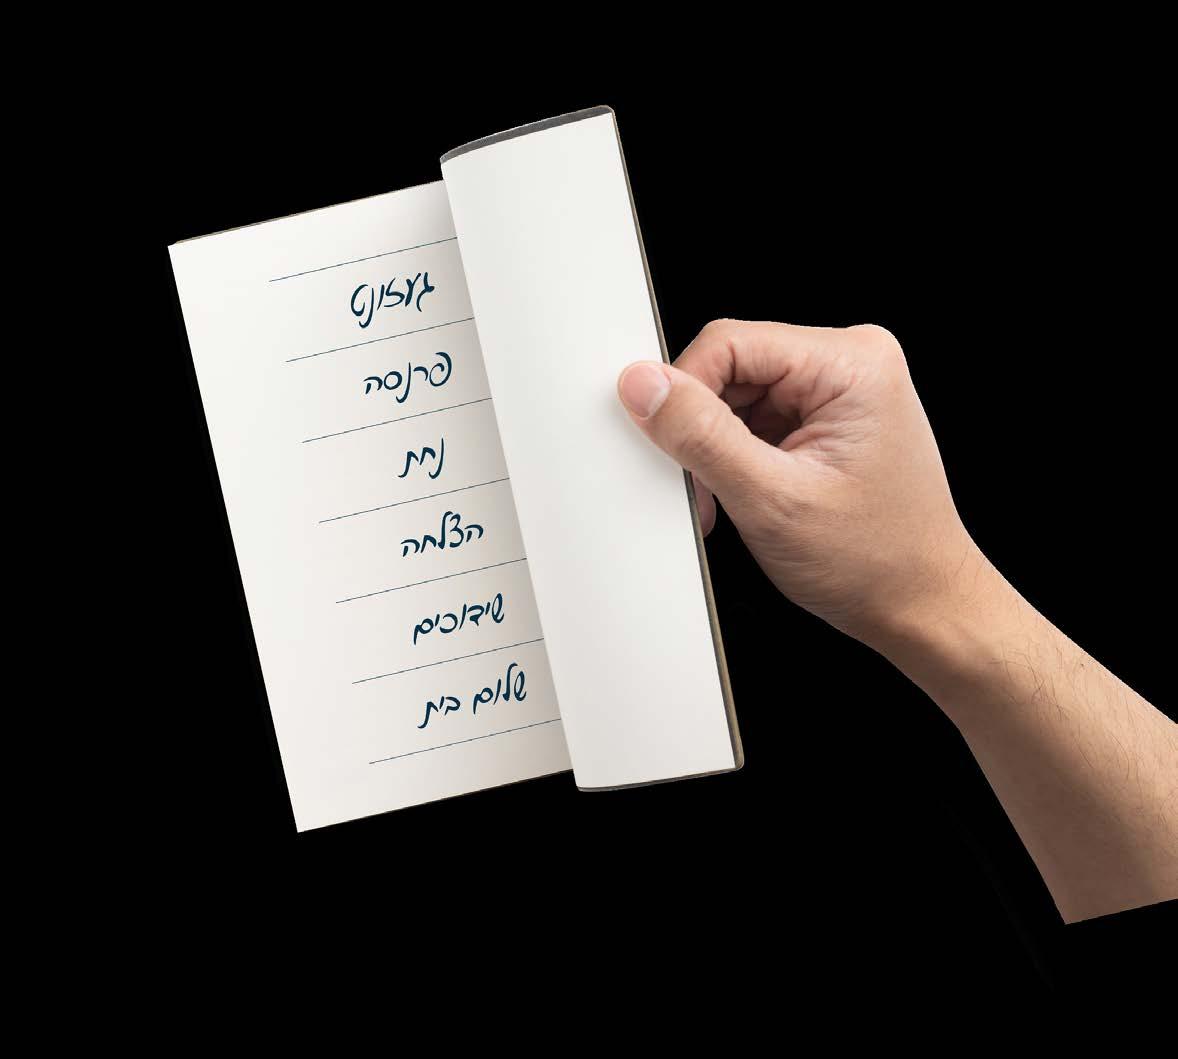 געזונט
פרנסה
נחת
הצלחה
שידוכים
שלום בית